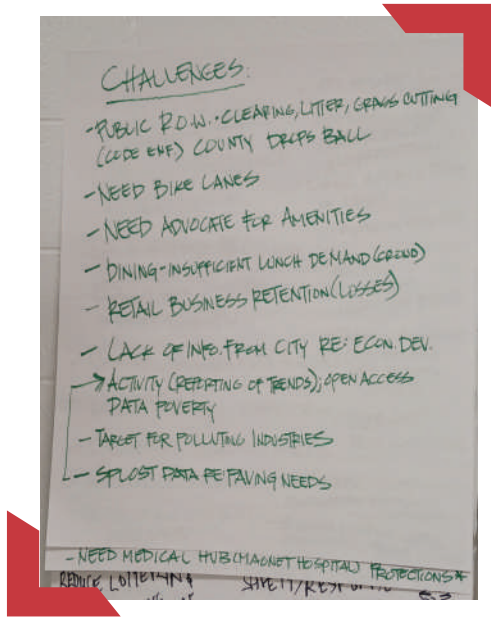 CHALLENGES:
- PUBLIC R.O.W. - CLEARING, LITTER, GRASS CUTTING
(CODE ENF) COUNTY DROPS BALL
- NEED BIKE LANES
- NEED ADVOCATE FOR AMENITIES
- DINING - INSUFFICIENT LUNCH DEMAND (CROWD)
- RETAIL BUSINESS RETENTION (LOSSES)
- LACK OF INFO. FROM CITY RE: ECON. DEV.
→ ACTIVITY (REPORTING OF TRENDS); OPEN ACCESS
DATA POVERTY
- TARGET FOR POLLUTING INDUSTRIES
- SPLOST DATA RE PAVING NEEDS
- NEED MEDICAL HUB (MAGNET HOSPITAL) PROTECTIONS*
REDUCE LOITERING